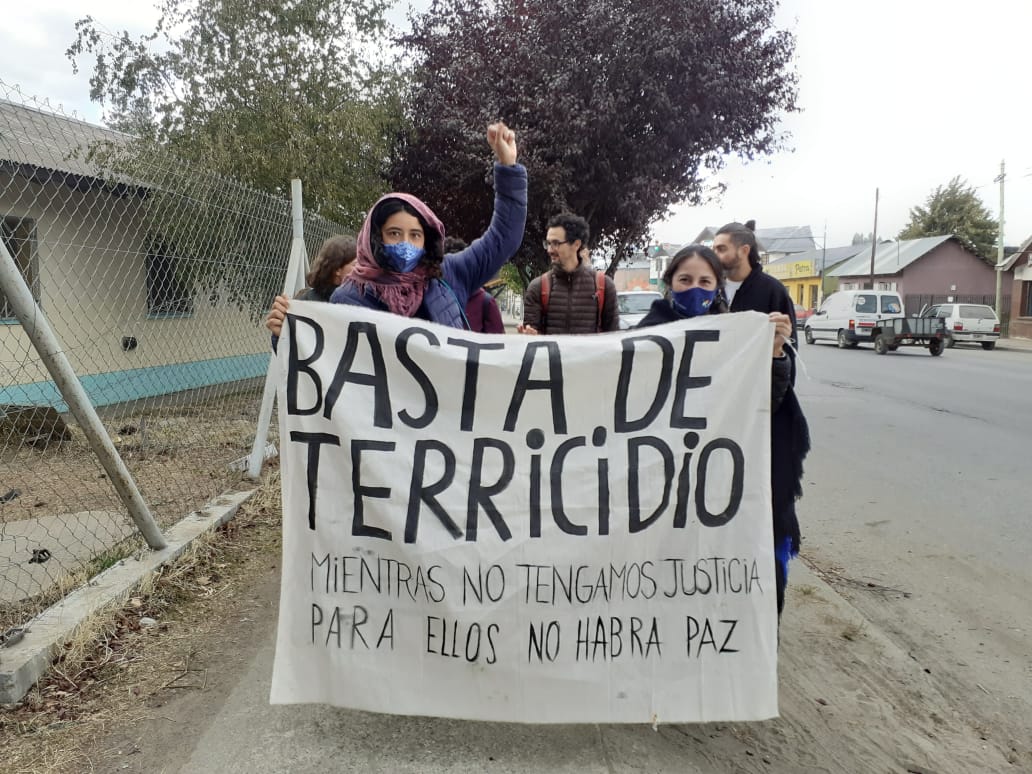 BASTA DE
TERRiCiDiO
MiENTRAS NO TENGAMOS JUSTiCiA
PARA ELLOS NO HABRA PAZ
Petra